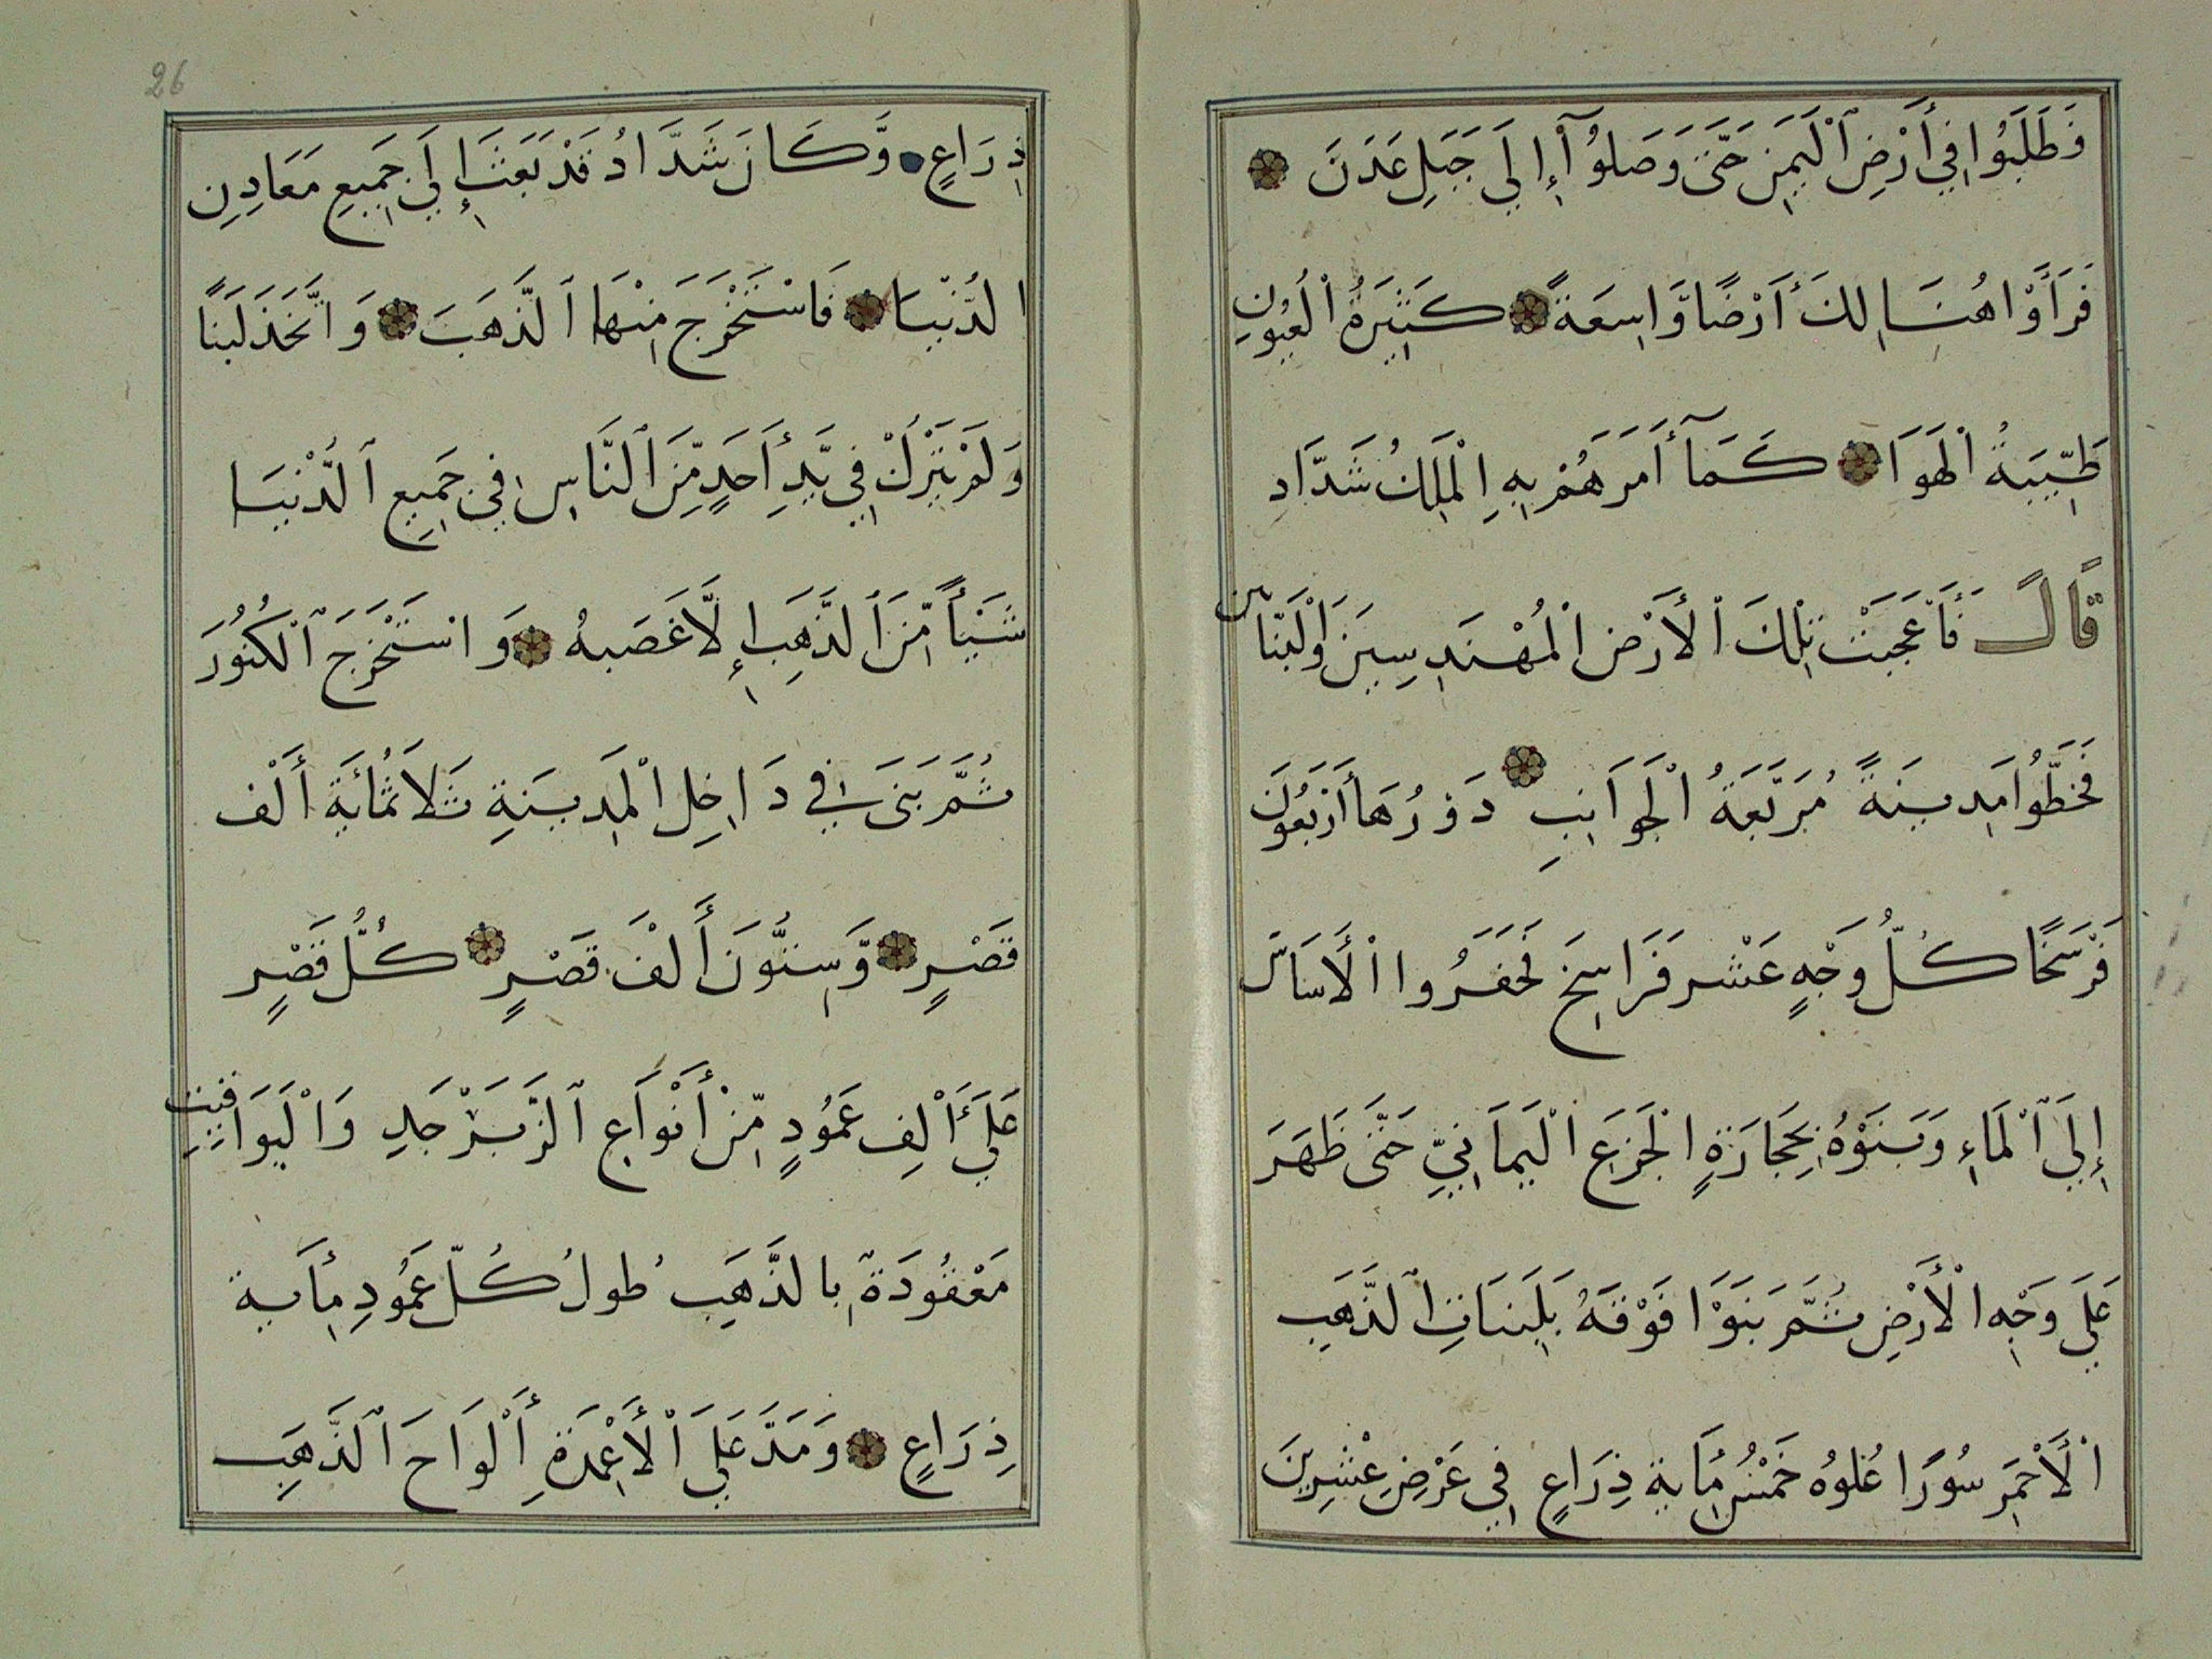 فَطَلَبُوا فِي أَرْضِ ٱلْيَمَنِ حَتَّى وَصَلُوآ إِلَي جَبَلِ عَدَنَ
فَرَأَوْا هُنَالِكَ أَرْضًا وَّاسِعَةً كَثِيرَةُ الْعُيُونِ
طَيِّبَةُ الْهَوَا كَمَآ أَمَرَهُمْ بِهِ الْمَلِكُ شَدَّادِ
قَالَ فَأَعْجَبَتْ تِلْكَ الْأَرْضِ الْمُهْنَدِسِينَ وَالْبَنَّائِن
فَخَطُّوا مَدِينَةً مُرَبَّعَةُ الْجَوَانِبِ دَوْرُهَا أَرْبَعُونَ
فَرْسَخًا كُلُّ وَجْهٍ عَشْر فَرَاسِخَ فَحَفَرُوا الْأَسَاسَ
إِلَي ٱلْمَاءِ وَبَنَوْهُ بِحِجَارَةٍ الْجَزَعِ الْيَمَانِيِّ حَتَّى ظَهَرَ
عَلَي وَجْهِ الْأَرْضِ ثُمَّ بَنَوْا فَوْقَهُ بَلِبَنَاتِ الذَّهَبِ
الْأَحْمَرِ سُورًا عُلوُهُ خَمْسُ مِأَيةِ ذِرَاعٍ فِي عَرْضِ عِشْرِينَ
26
ذِرَاعٍ وَّكَانَ شَدَّادُ قَدْ بَعَثَ إِلَي جَمِيعِ مَعَادِنِ
الدُّنْيَا فَاسْتَخْرَجَ مِنْهَا ٱلذَّهَبَ وَاتَّخَذَ لَبَنًا
وَلَمْ يَتْرُكْ فِي يَدِ أَحَدٍ مِّنَ ٱلنَّاسِ فِي جَمِيعِ ٱلدُّنْيَا
شَيْأً مِّنَ ٱلذَّهَبِ إِلَّا غَصَبهُ وَاسْتَخْرَجَ ٱلْكُنُوزَ
ثُمَّ بَنَى فِي دَاخِلِ الْمَدِينَةِ ثَلَاثُمِائَةِ أَلْف
قَصْرٍ وَّسِتُّونَ أَلْفَ قَصْرٍ كُلُّ قَصْرٍ
عَلَي أَلْفِ عَمُودٍ مِّنْ أَنْوَاعِ ٱلزَّبَرْجَدِ وَالْيَوَاقِيتِ
مَعْقُودَةٌ بِالذَّهَبِ طُولُ كُلِّ عَمُودِ مِأَية
ذِرَاعٍ وَمَدَّ عَلَي ٱلْأَعْمِدَةِ أَلْوَاحَ ٱلذَّهَبِ